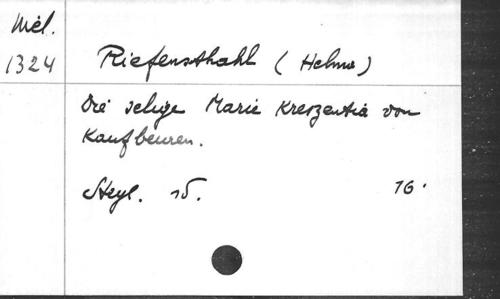 Mél.
1324
Riefensthahl (Helma)
Die selige Maria Kreszentia von
Kaufbeuren.
Steyl. 15. 16.